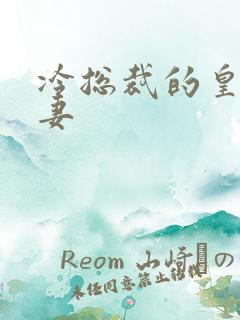 冷总裁的皇
妻
Reom 山崎の
未任同意禁止转校